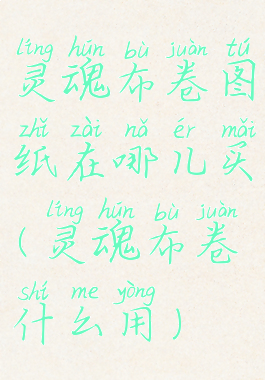 líng hún bù juàn tú
灵魂布卷图
zhǐ zài nǎ ér mǎi
纸在哪儿买
líng hún bù juàn
(灵魂布卷
shí me yòng
什么用)